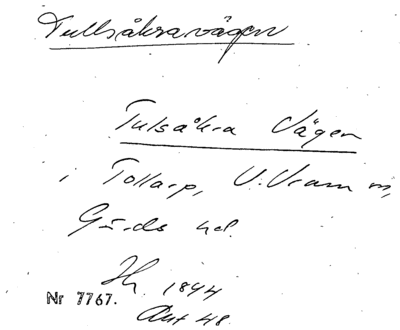 Tullsåkravägen
Tulsåkra Vägen
i Tollarp, V. Vram m,
Gärds hd.
Nr 7767.
1844
Akt 48